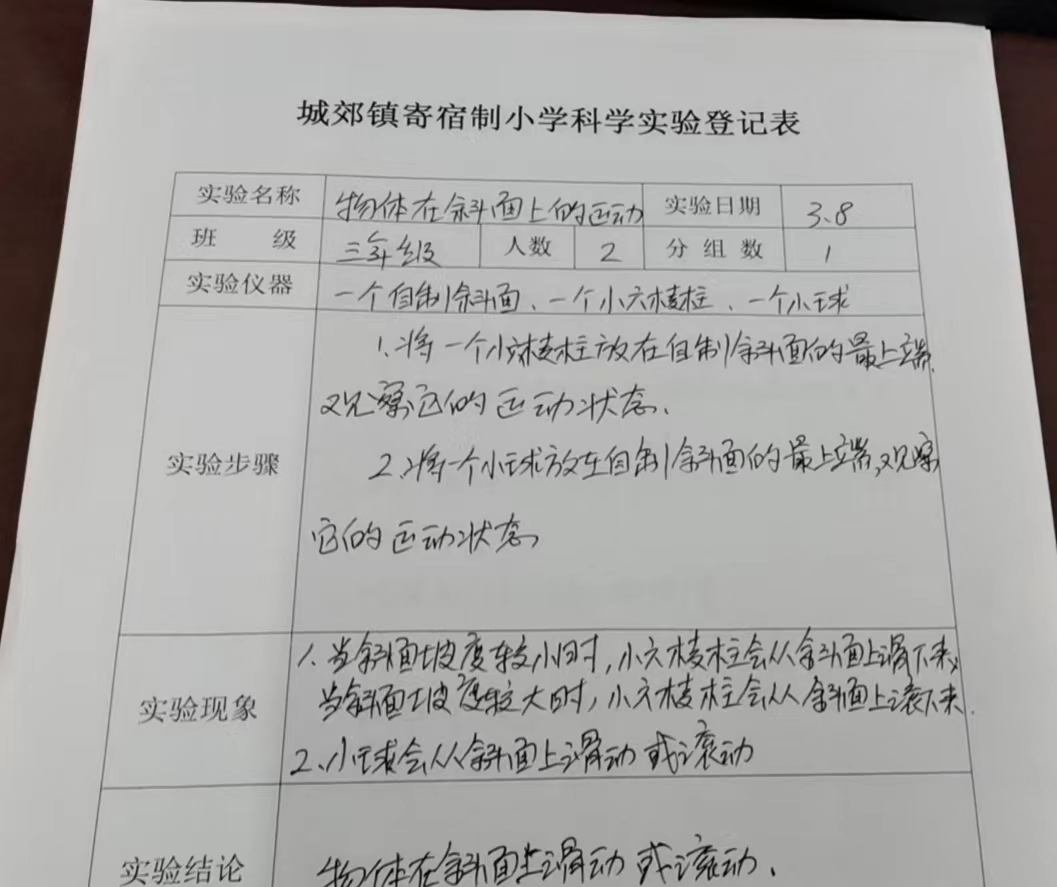 城郊镇寄宿制小学科学实验登记表
实验名称 物体在斜面上的运动 实验日期 3.8
班 级 三年级 人数 2 分组数 1
实验仪器 一个自制斜面、一个小六棱柱、一个小球
1.将一个小六棱柱放在自制斜面的最上端,
观察它的运动状态.
实验步骤
2.将一个小球放在自制斜面的最上端,观察
它的运动状态
1.当斜面坡度较小时,小六棱柱会从斜面上滑下来,
实验现象
当斜面坡度较大时,小六棱柱会从斜面上滚下来.
2.小球会从斜面上滑动或滚动
实验结论 物体在斜面上滑动或滚动.